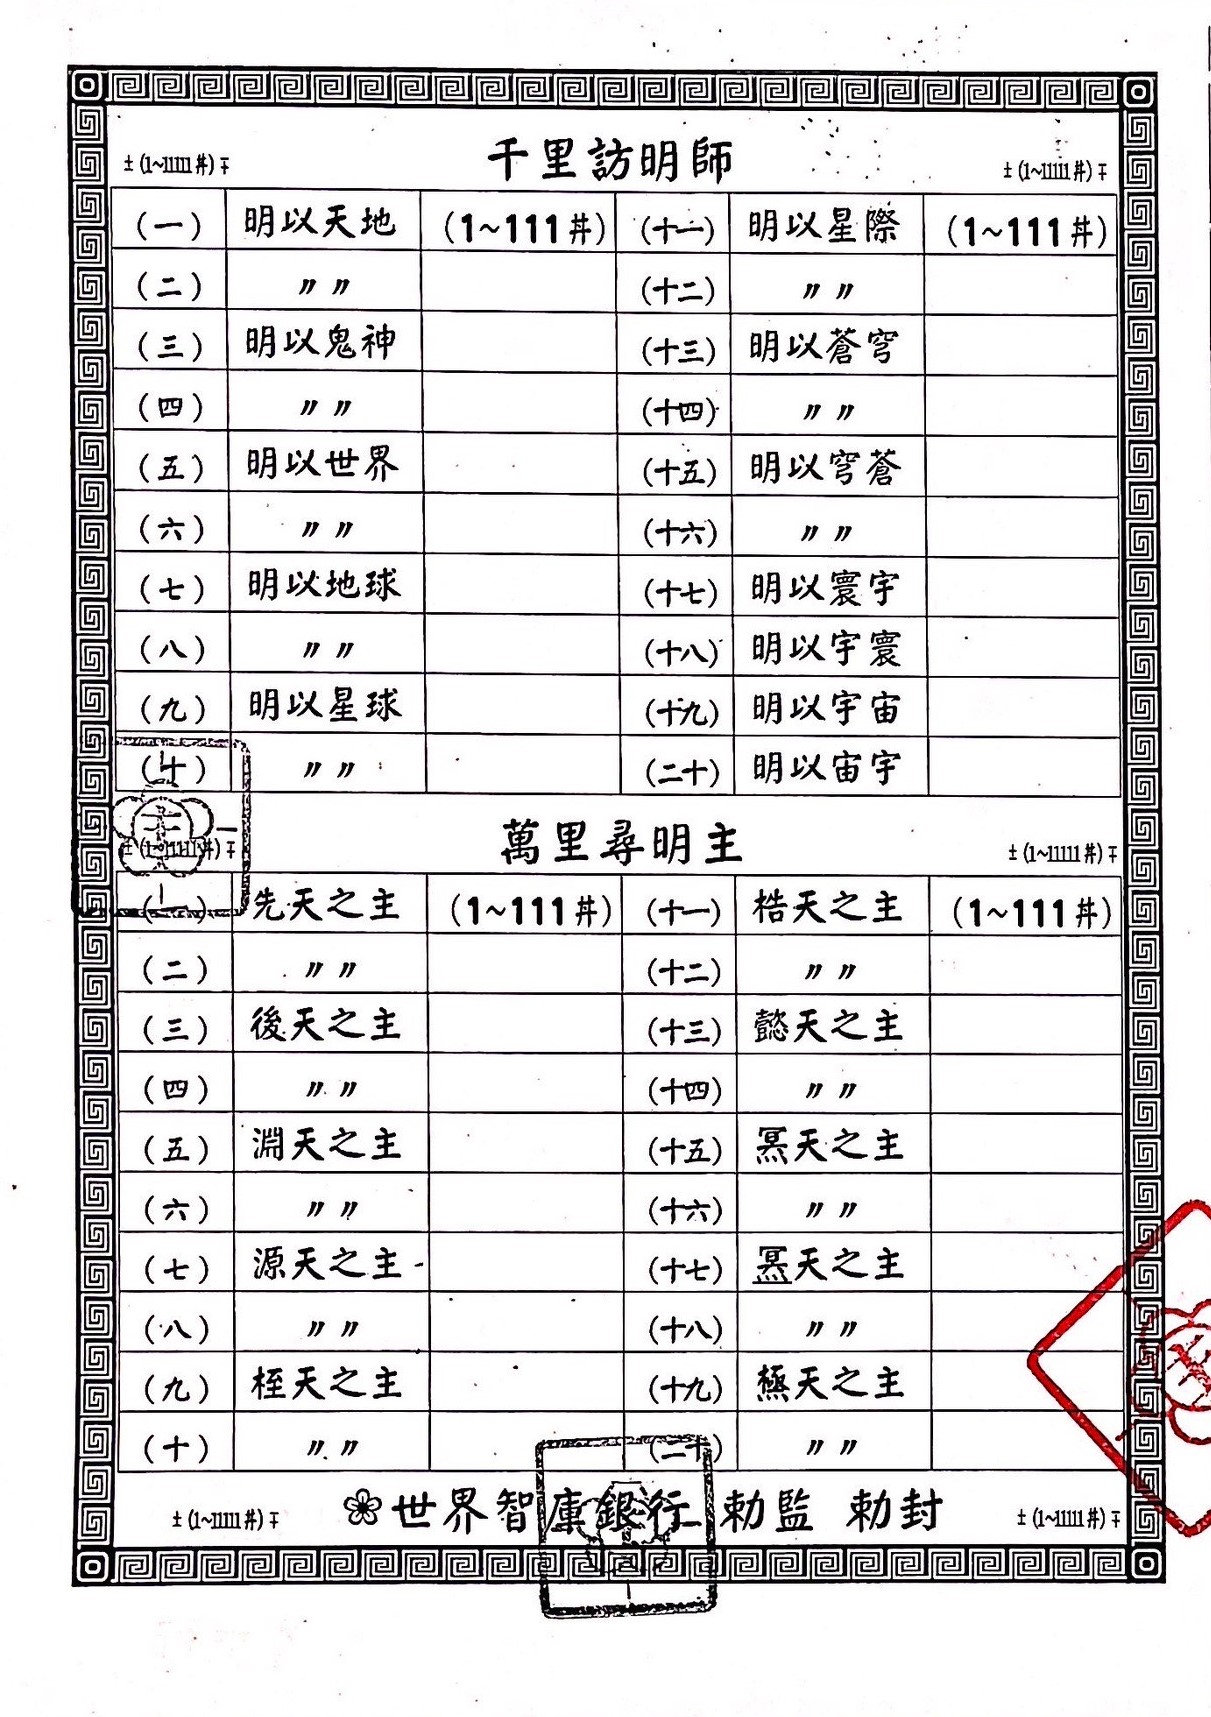 千里訪明師
±(1~11111丼)∓ ±(1~11111丼)∓
(一) 明以天地 (1~111丼) (十一) 明以星際 (1~111丼)
(二) 〃〃 (十二) 〃〃
(三) 明以鬼神 (十三) 明以蒼穹
(四) 〃〃 (十四) 〃〃
(五) 明以世界 (十五) 明以穹蒼
(六) 〃〃 (十六) 〃〃
(七) 明以地球 (十七) 明以寰宇
(八) 〃〃 (十八) 明以宇寰
(九) 明以星球 (十九) 明以宇宙
(十) 〃〃 (二十) 明以宙宇
萬里尋明主
±(1~11111丼)∓ ±(1~11111丼)∓
(一) 先天之主 (1~111丼) (十一) 梏天之主 (1~111丼)
(二) 〃〃 (十二) 〃〃
(三) 後天之主 (十三) 懿天之主
(四) 〃〃 (十四) 〃〃
(五) 淵天之主 (十五) 天之主
(六) 〃〃 (十六) 〃〃
(七) 源天之主 (十七) 天之主
(八) 〃〃 (十八) 〃〃
(九) 桎天之主 (十九) 天之主
(十) 〃〃 (二十) 〃〃
世界智庫銀行 勅監 勅封
±(1~11111丼)∓ ±(1~11111丼)∓